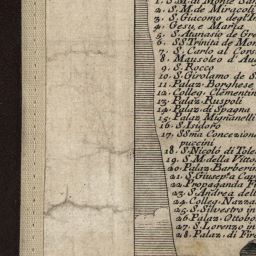 1. S. M. di Monte San
2. S. M. de Miracoli
3. S. Giacomo degl'In
4. Gesu, e Maria
5. S. Atanasio de Gre
6. SS. Trinità de Mon
7. S. Carlo al Cors
8. Mausoleo d'Au
9. S. Rocco
10. S. Girolamo de S
11. Palaz. Borghese
12. Colleg. Clementin
13. Palaz. Ruspoli
14. Palaz. di Spagna
15. Palaz. Mignanelli
16. S. Isidoro
17. SSma Concezion
puccini
18. S. Nicolò di Tole
19. S. M. della Vitto
20. Palaz. Barberin
21. S. Giusep.e a Cap
22. Propaganda Fi
23. S. Andrea dell
24. Colleg. Nazza
25. S. Silvestro in
26. Palaz. Ottobo
27. S. Lorenzo in
28. Palaz. di Fi